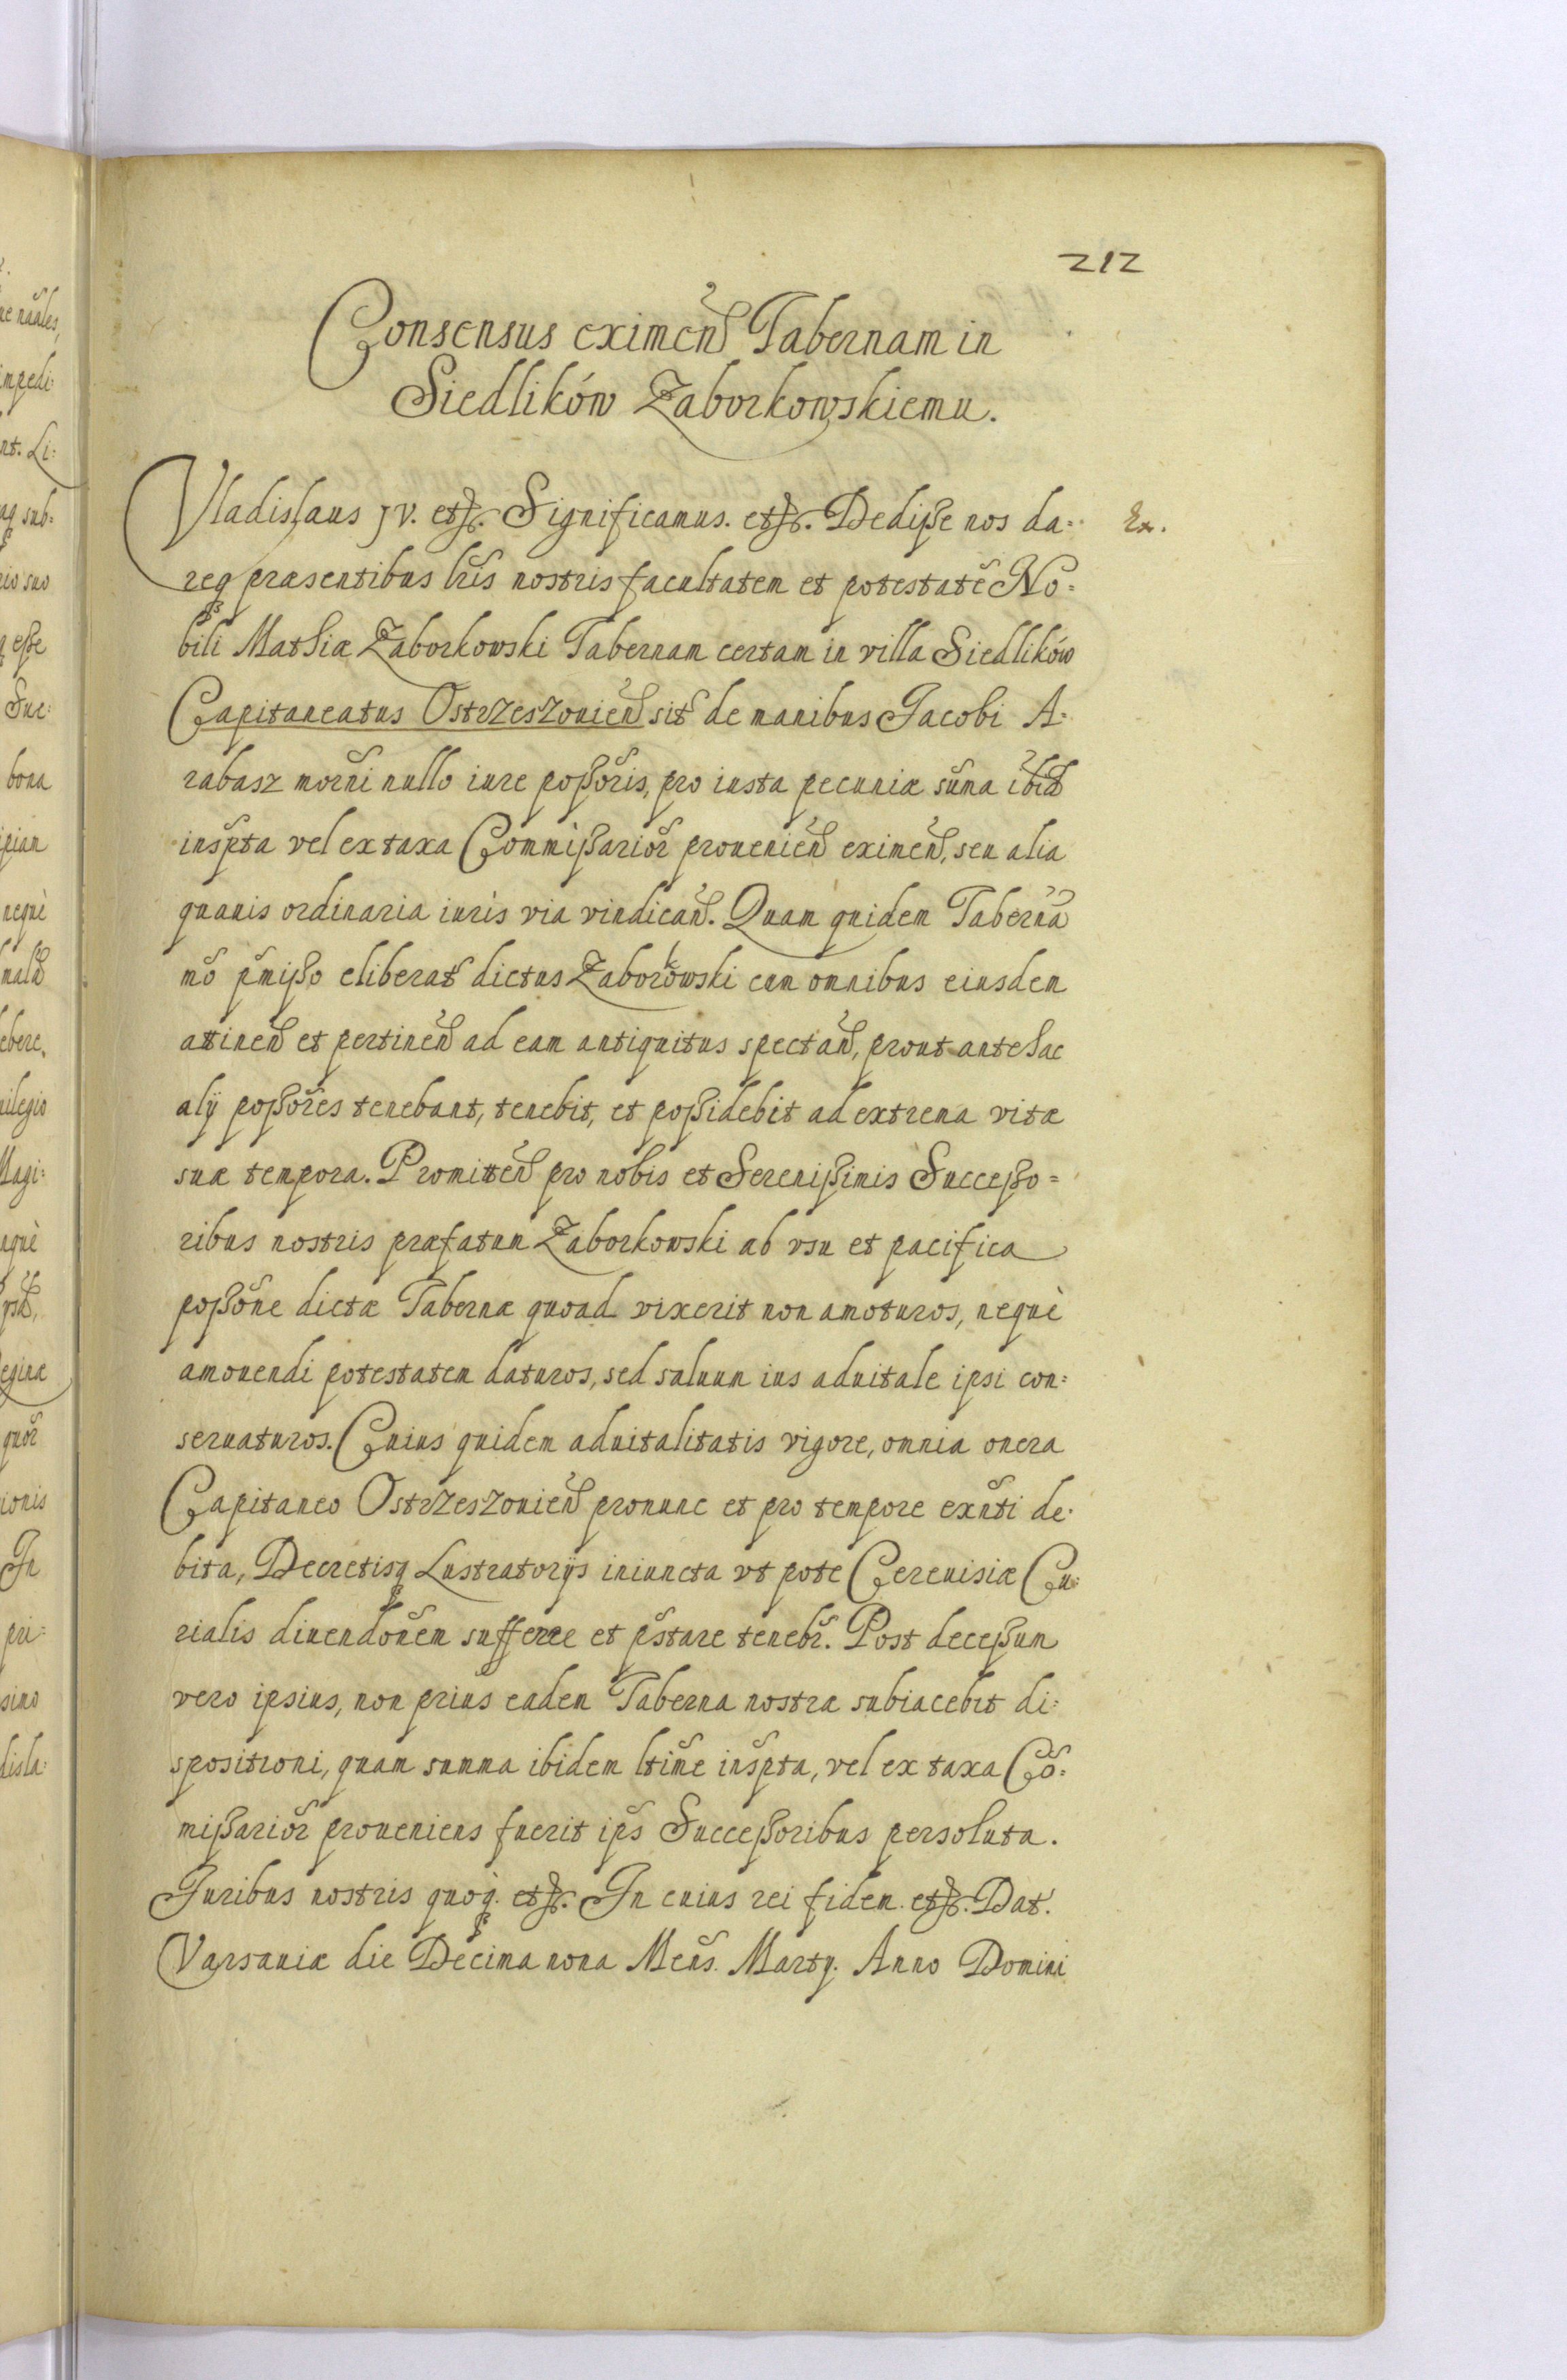 212
Consensus eximen̄ Tabernam in
Siedlików Zaborkowskiemu.
Vladislaus JV. etc. Significamus. etc. Dediſse nos da=
Ex.
req præsentibus lrīs nostris facultatem et potestatē No=
bili Mathiæ Zaborkowski Tabernam certam in villa Siedlików
Capitaneatus Ostrzeszouien̄ sit̄ de manibus Jacobi A=
rabasz mōrni nullo iure poſsōris, pro iusta pecuniæ sūma ibid̄
inspt̄a vel ex taxa Commiſsariōr prouenien̄ eximen̄, seu alia
quauis ordinaria iuris via vindican̄. Quam quidem Tabernā
mō p̄miſso eliberat̄ dictus Zaborkowski cum omnibus eiusdem
attinen̄ et pertinen̄ ad eam antiquitus spectan̄, prout antehac
alij poſsōres tenebant, tenebit, et poſsidebit ad extrema vitæ
suæ tempora. Promitten̄ pro nobis et Sereniſsimis Succeſso=
ribus nostris præfatum Zaborkowski ab vsu et pacifica
poſsōne dictæ Tabernæ quoad vixerit non amoturos, nequè
amouendi potestatem daturos, sed saluum ius aduitale ipsi con=
seruaturos. Cuius quidem aduitalitatis vigore, omnia onera
Capitaneo Ostrzeszouien̄ pronunc et pro tempore exn̄ti de=
bita, Decretisq Lustratorijs iniuncta vt pote Cereuisiæ Cu=
rialis diuendōnem sufferre et p̄stare tenebr̄. Post deceſsum
vero ipsius, non prius eadem Taberna nostra subiacebit di=
spositioni, quam summa ibidem ltīme inspt̄a, vel ex taxa Cō=
miſsariōr proueniens fuerit ip̄s Succeſsoribus persoluta.
Juribus nostris quoq. etc. In cuius rei fidem. etc. Dat.
Varsauiæ die Decima nona Mens̄. Martij. Anno Domini